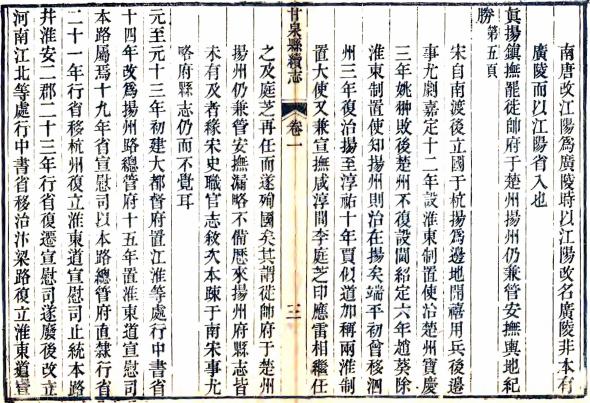 南唐改江陽爲廣陵時以江陽改名廣陵非本有
廣陵而以江陽省入也
眞揚鎭撫罷徙帥府于楚州揚州仍兼管安撫輿地紀
勝第五頁
宋自南渡後立國于杭揚爲邊地開禧用兵後邊
事尤劇嘉定十二年設淮東制置使治楚州寶慶
三年姚翀敗後楚州不復設閫紹定六年趙葵除
淮東制置使知揚州則治在揚矣端平初曾移泗
州三年復治揚至淳祐十年賈似道加稱兩淮制
置大使又兼宣撫咸淳間李庭芝印應雷相繼任
甘泉縣續志
卷一
三
之及庭芝再任而遂殉國矣其謂徙帥府于楚州
揚州仍兼管安撫漏略不備歷來揚州府縣志皆
未有及者緣宋史職官志敘次本疎于南宋事尤
略府縣志仍而不覺耳
元至元十三年初建大都督府置江淮等處行中書省
十四年改爲揚州路總管府十五年置淮東道宣慰司
本路屬焉十九年省宣慰司以本路總管府直隸行省
二十一年行省移杭州復立淮東道宣慰司止統本路
并淮安二郡二十三年行省復遷宣慰司遂廢後改立
河南江北等處行中書省移治汴梁路復立淮東道宣